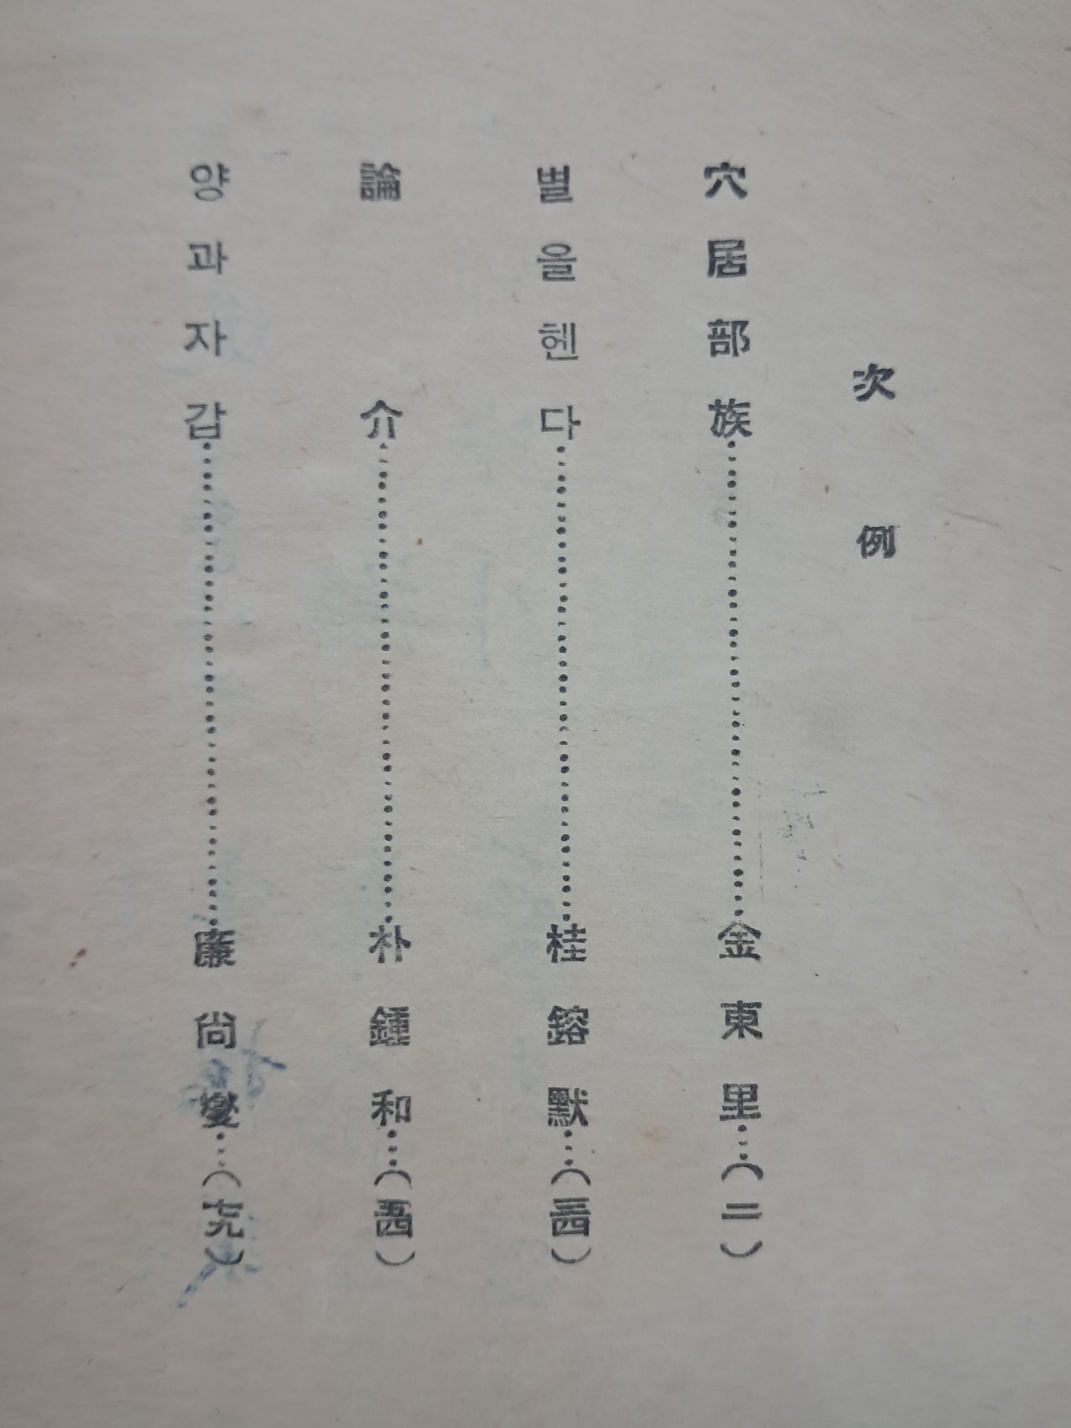 次例
穴居部族……………………金東里…(二)
별을헨다……………………桂鎔默…(三四)
論介……………………朴鍾和…(五四)
양과자갑……………………廉尙燮…(七九)